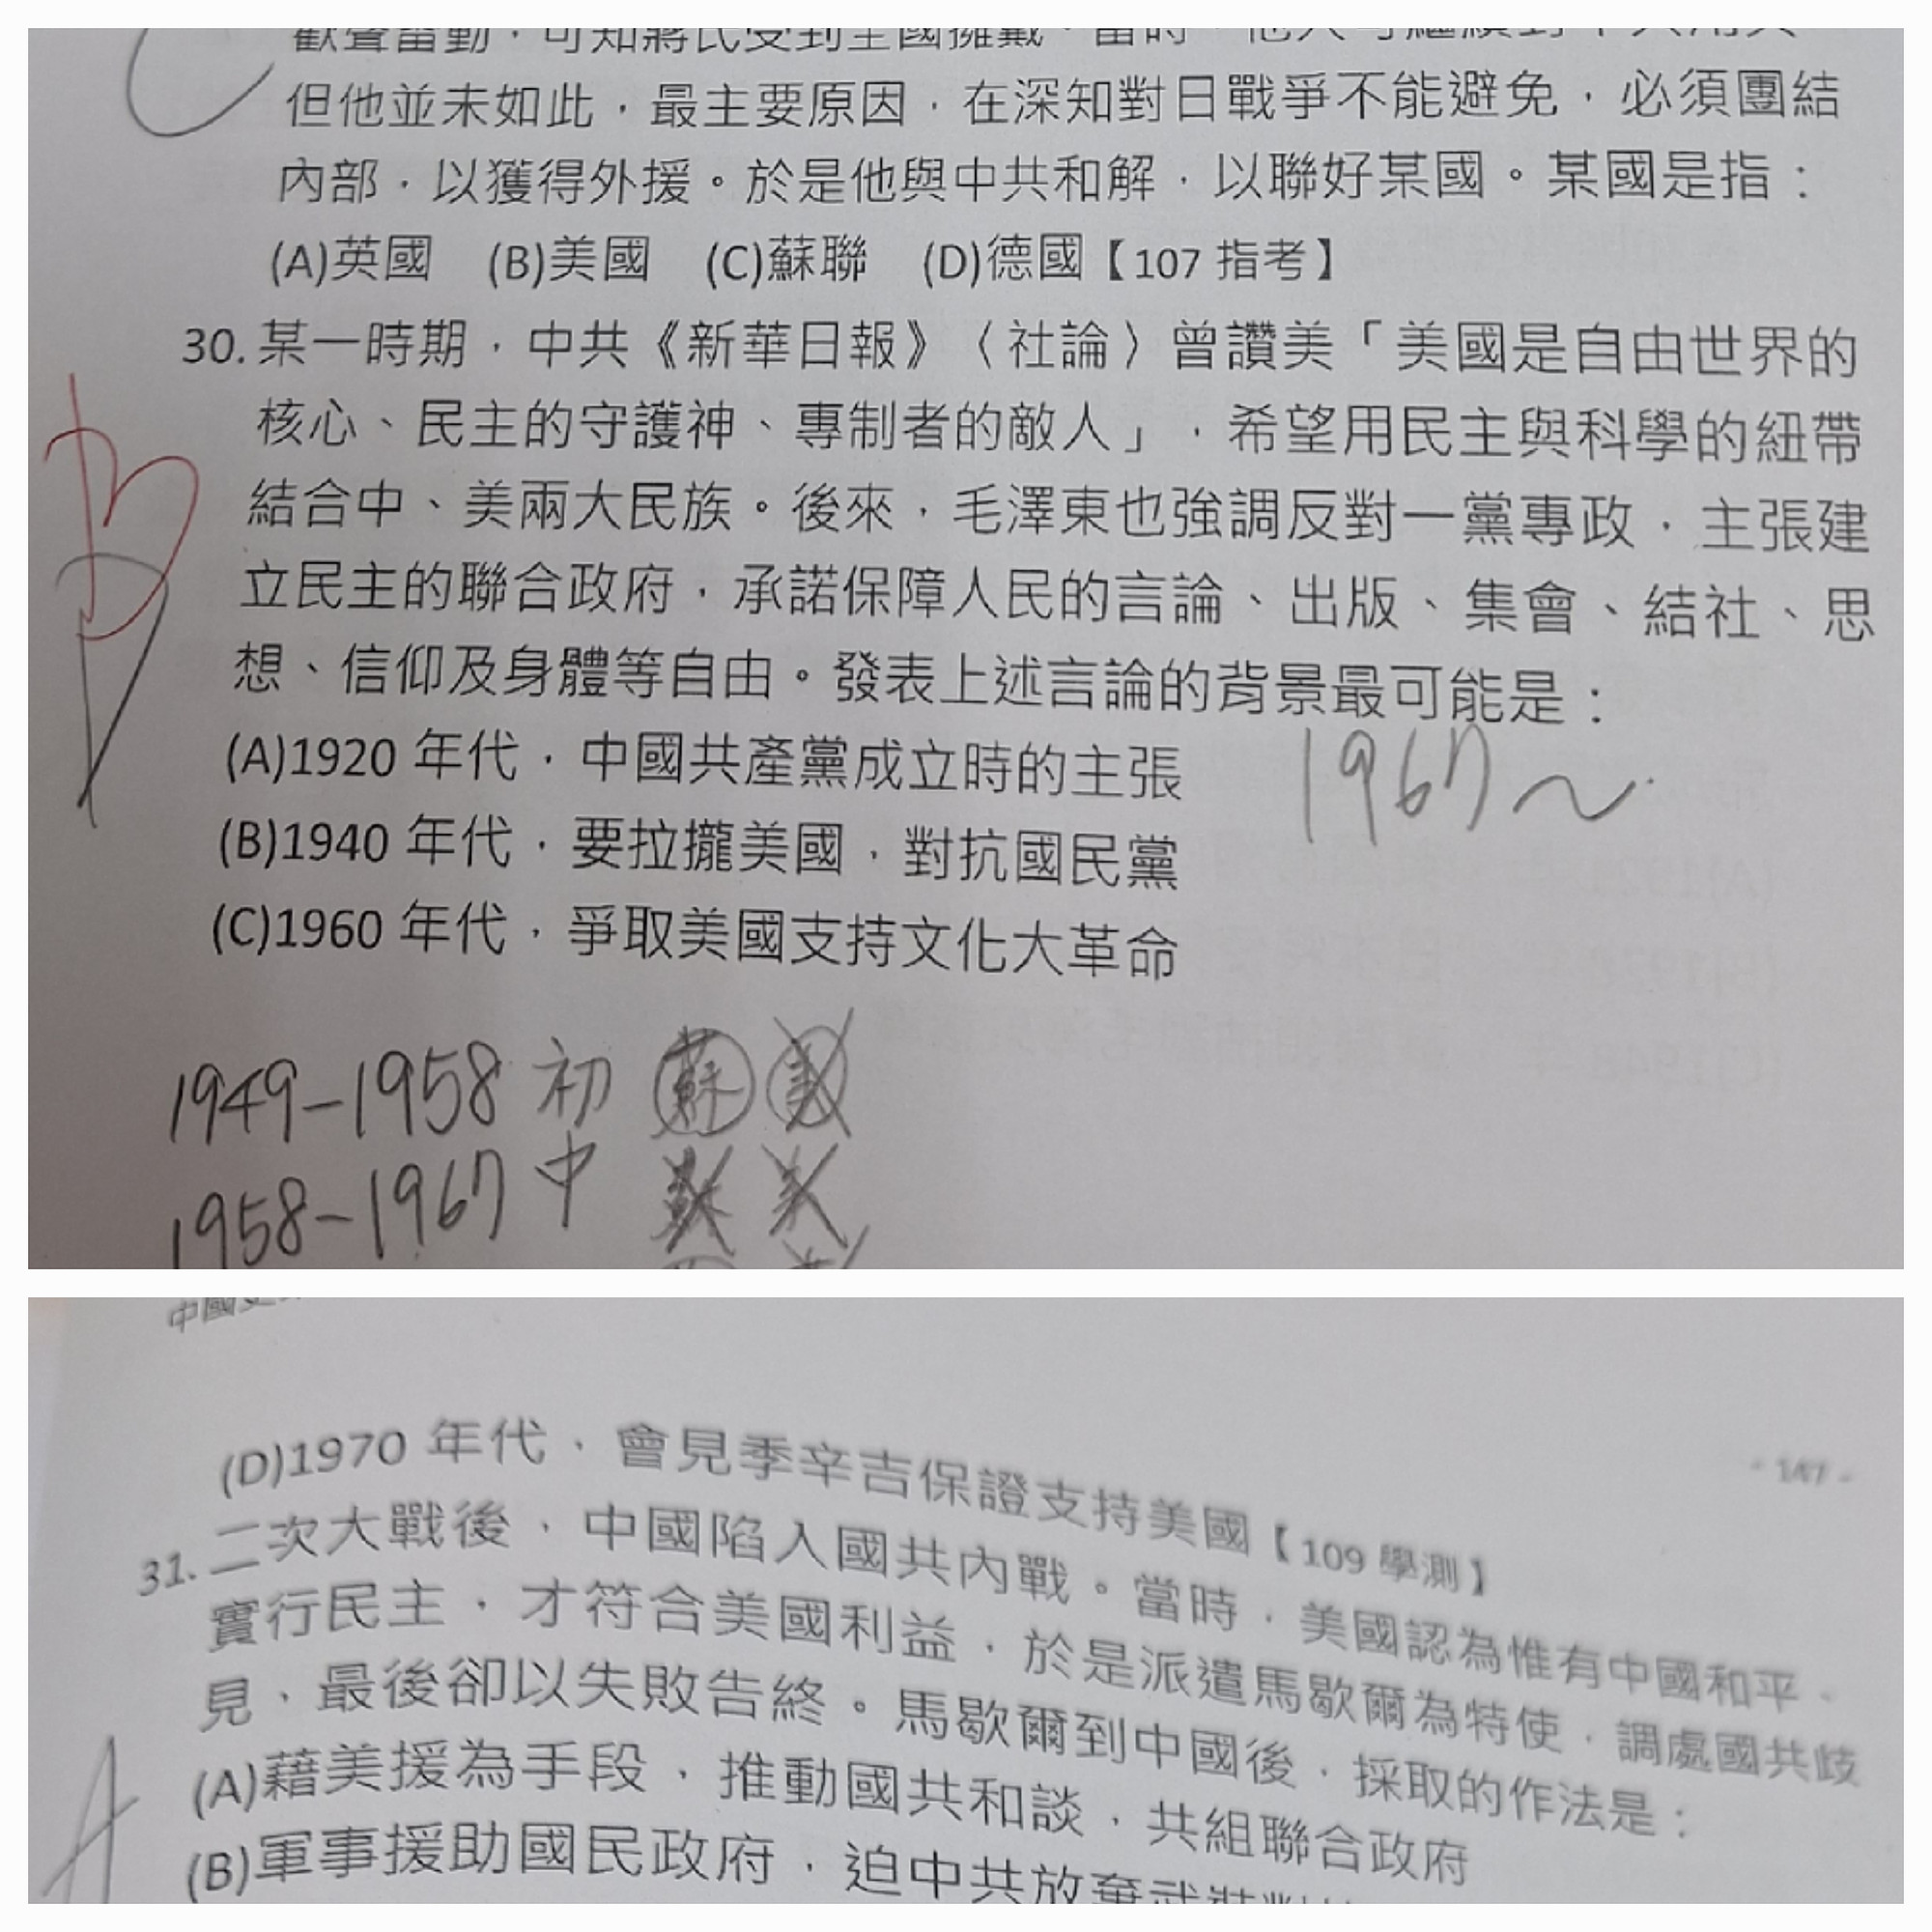 但他並未如此，最主要原因，在深知對日戰爭不能避免，必須團結
內部，以獲得外援。於是他與中共和解，以聯好某國。某國是指：
(A)英國 (B)美國 (C)蘇聯 (D)德國【107 指考】
30. 某一時期，中共《新華日報》〈社論〉曾讚美「美國是自由世界的
核心、民主的守護神、專制者的敵人」，希望用民主與科學的紐帶
結合中、美兩大民族。後來，毛澤東也強調反對一黨專政，主張建
立民主的聯合政府，承諾保障人民的言論、出版、集會、結社、思
想、信仰及身體等自由。發表上述言論的背景最可能是：
(A)1920 年代，中國共產黨成立時的主張
1967~
(B)1940 年代，要拉攏美國，對抗國民黨
(C)1960 年代，爭取美國支持文化大革命
B
D
1949-1958 初 蘇 美
1958-1967 中 蘇 美
- 147 -
(D)1970 年代，會見季辛吉保證支持美國【109 學測】
31. 二次大戰後，中國陷入國共內戰。當時，美國認為惟有中國和平、
實行民主，才符合美國利益，於是派遣馬歇爾為特使，調處國共歧
見，最後卻以失敗告終。馬歇爾到中國後，採取的作法是：
A
(A)藉美援為手段，推動國共和談，共組聯合政府
(B)軍事援助國民政府，迫中共放棄武裝